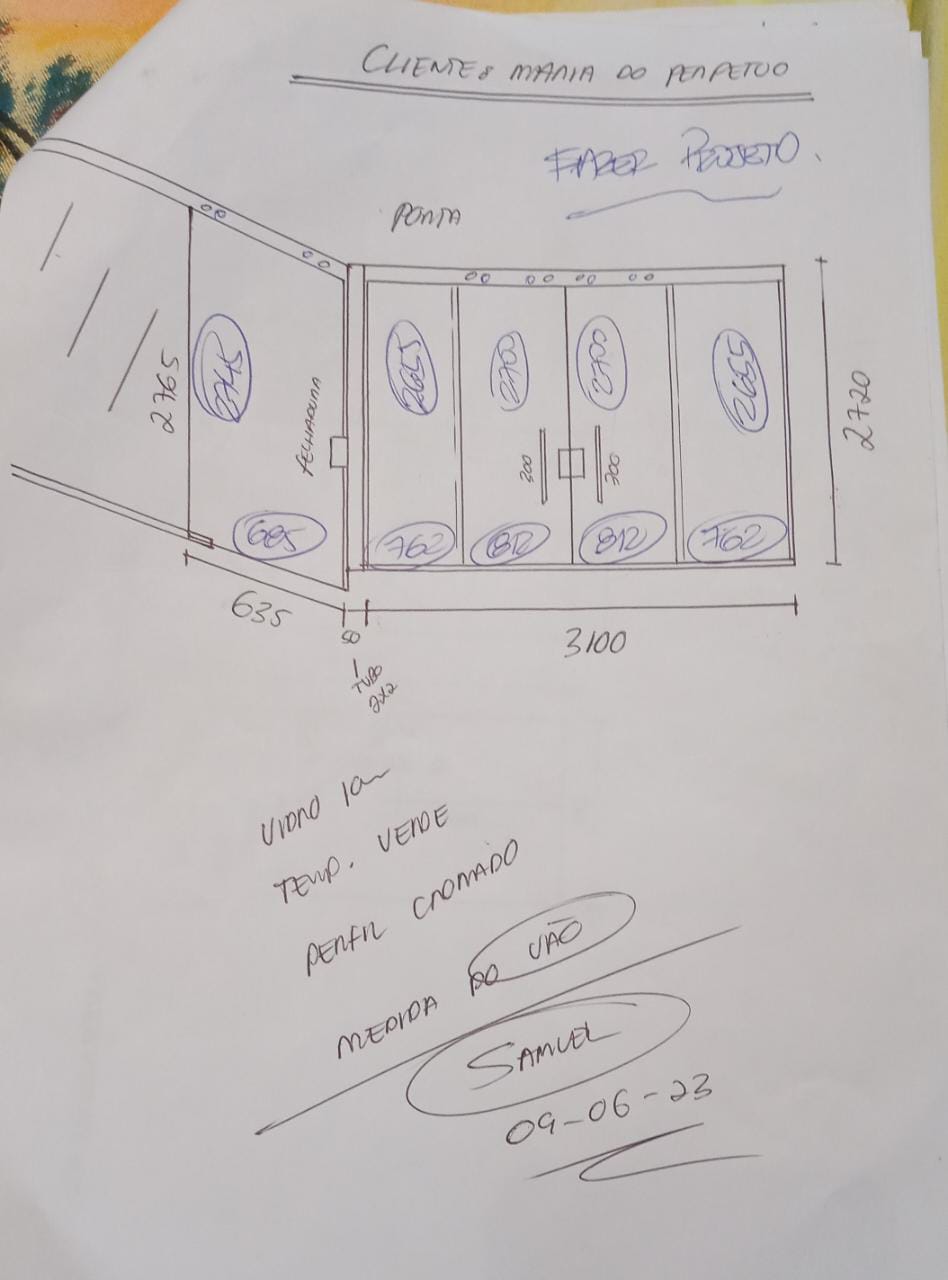 CLIENTE: MARIA DO PERPETUO
FAZER PROJETO.
PORTA
2765
2745
FECHADURA
2655
2700
2700
2655
300
300
2720
685
762
812
812
762
635
50
3100
TUBO
2X2
VIDRO 10m
TEMP. VERDE
PERFIL CROMADO
MEDIDA DO VÃO
SAMUEL
09-06-23